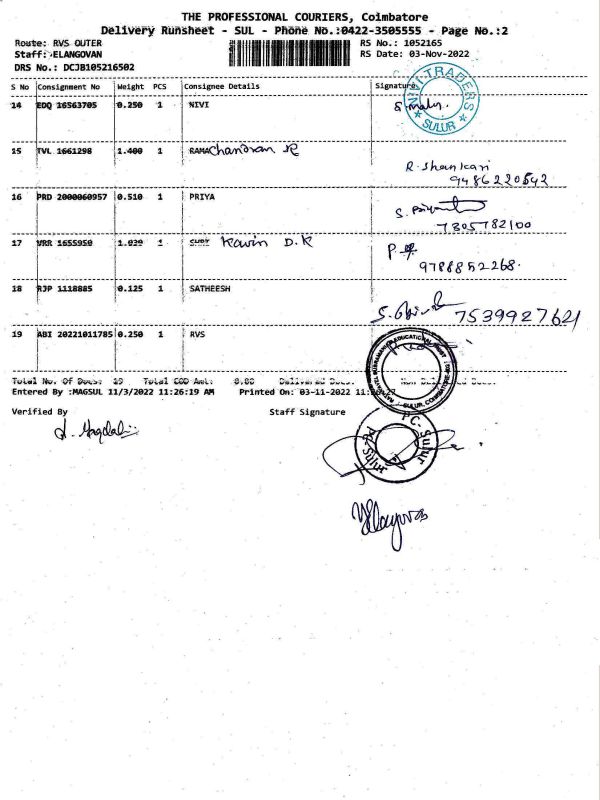 THE PROFESSIONAL COURIERS, Coimbatore
Delivery Runsheet - SUL - Phone No.:0422-3505555 - Page No.:2
Route: RVS OUTER RS No.: 1052165
Staff: ELANGOVAN RS Date: 03-Nov-2022
DRS No.: DCJB105216502
S No Consignment No Weight PCS Consignee Details Signature
NIVI TRADERS
SULUR
14 EDQ 16563705 0.250 1 NIVI
15 TVL 1661298 1.400 1 RAMAChandran R
R. Shankari
9486220542
16 PRD 2000060957 0.510 1 PRIYA
7305782100
17 VRR 1655950 1.020 1 Kavin D.K
9788852268.
18 RJP 1118885 0.125 1 SATHEESH
7539927621
19 ABI 20221011785 0.250 1 RVS
Total No. Of Docs: 19 Total COD Amt: 0.00
Entered By :MAGSUL 11/3/2022 11:26:19 AM Printed On: 03-11-2022
SULUR, COIMBATORE
Verified By Staff Signature
P.C. Sulur